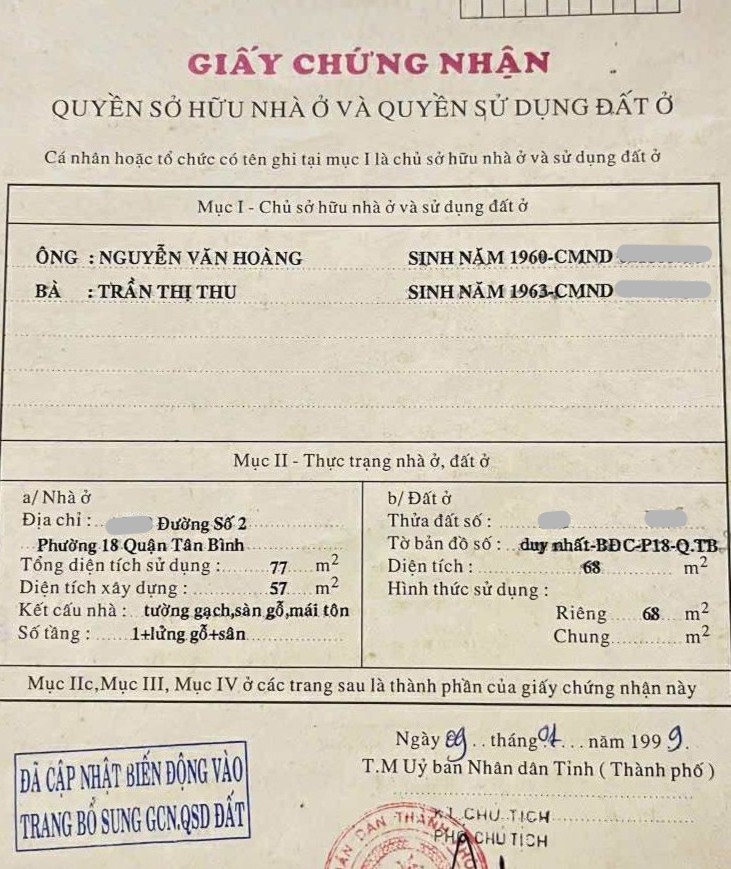 GIẤY CHỨNG NHẬN
QUYỀN SỞ HỮU NHÀ Ở VÀ QUYỀN SỬ DỤNG ĐẤT Ở
Cá nhân hoặc tổ chức có tên ghi tại mục I là chủ sở hữu nhà ở và sử dụng đất ở
Mục I - Chủ sở hữu nhà ở và sử dụng đất ở
ÔNG : NGUYỄN VĂN HOÀNG SINH NĂM 1960-CMND
BÀ : TRẦN THỊ THU SINH NĂM 1963-CMND
Mục II - Thực trạng nhà ở, đất ở
a/ Nhà ở
Địa chỉ : Đường Số 2
Phường 18 Quận Tân Bình
Tổng diện tích sử dụng : 77 m2
Diện tích xây dựng : 57 m2
Kết cấu nhà : tường gạch,sàn gỗ,mái tôn
Số tầng : 1+lửng gỗ+sân
b/ Đất ở
Thửa đất số :
Tờ bản đồ số : duy nhất-BĐC-P18-Q.TB
Diện tích : 68 m2
Hình thức sử dụng :
Riêng 68 m2
Chung m2
Mục IIc,Mục III, Mục IV ở các trang sau là thành phần của giấy chứng nhận này
Ngày 09 tháng 01 năm 1999.
T.M Uỷ ban Nhân dân Tỉnh ( Thành phố )
KT CHỦ TỊCH
PHÓ CHỦ TỊCH
DÂN THÀNH PHỐ
ĐÃ CẬP NHẬT BIẾN ĐỘNG VÀO
TRANG BỔ SUNG GCN.QSD ĐẤT